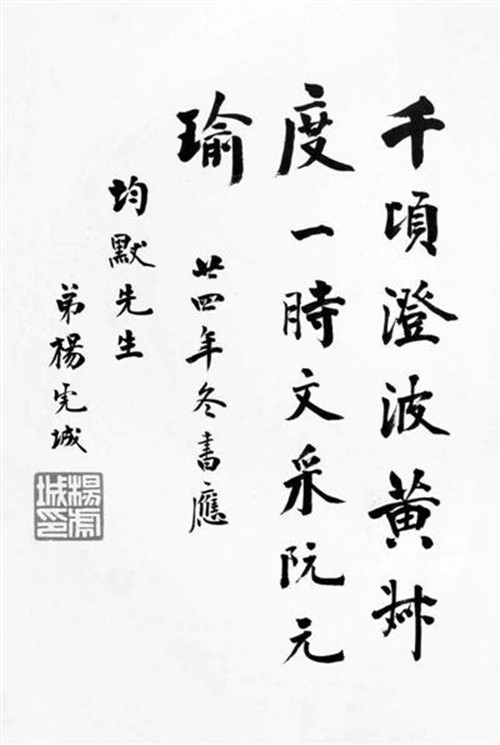 千頃澄波黄叔
度一時文采阮元
瑜
廿四年冬書應
均默先生
弟楊虎城
楊虎城印